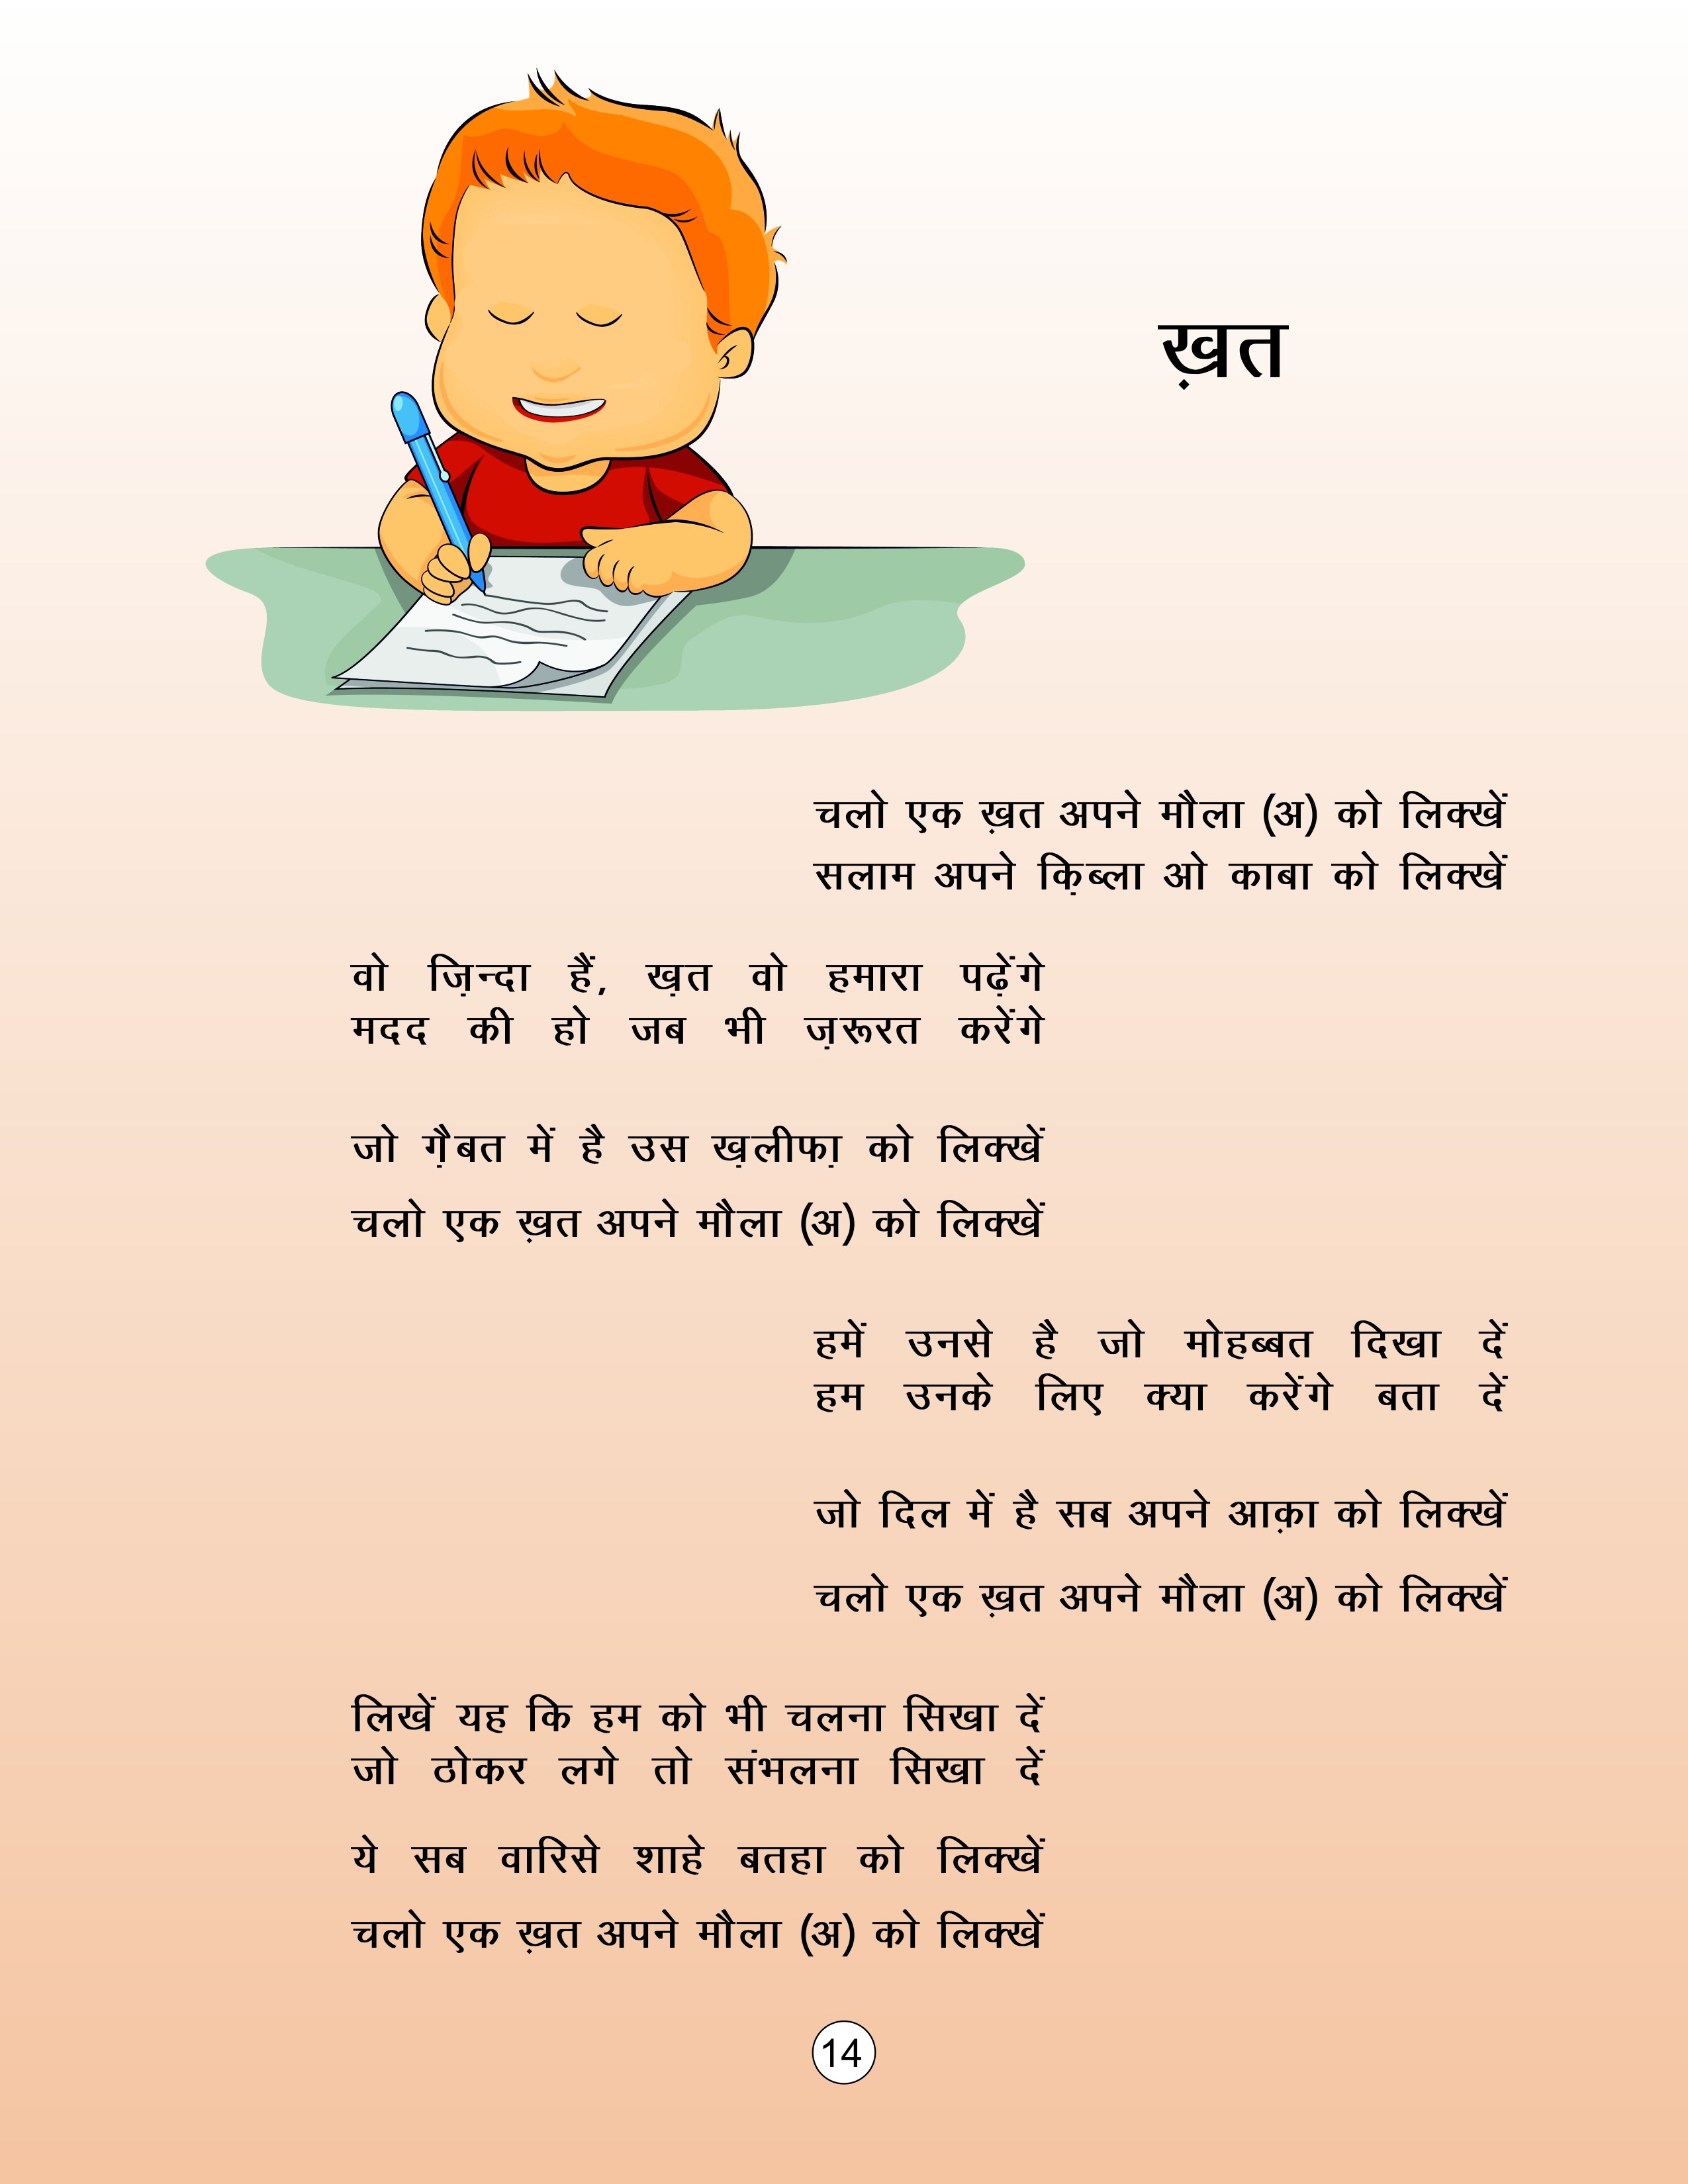 ख़त
चलो एक ख़त अपने मौला (अ) को लिक्खें
सलाम अपने क़िब्ला ओ काबा को लिक्खें
वो ज़िन्दा हैं, ख़त वो हमारा पढ़ेंगे
मदद की हो जब भी ज़रूरत करेंगे
जो ग़ैबत में है उस ख़लीफ़ा को लिक्खें
चलो एक ख़त अपने मौला (अ) को लिक्खें
हमें उनसे है जो मोहब्बत दिखा दें
हम उनके लिए क्या करेंगे बता दें
जो दिल में है सब अपने आक़ा को लिक्खें
चलो एक ख़त अपने मौला (अ) को लिक्खें
लिखें यह कि हम को भी चलना सिखा दें
जो ठोकर लगे तो संभलना सिखा दें
ये सब वारिसे शाहे बतहा को लिक्खें
चलो एक ख़त अपने मौला (अ) को लिक्खें
14